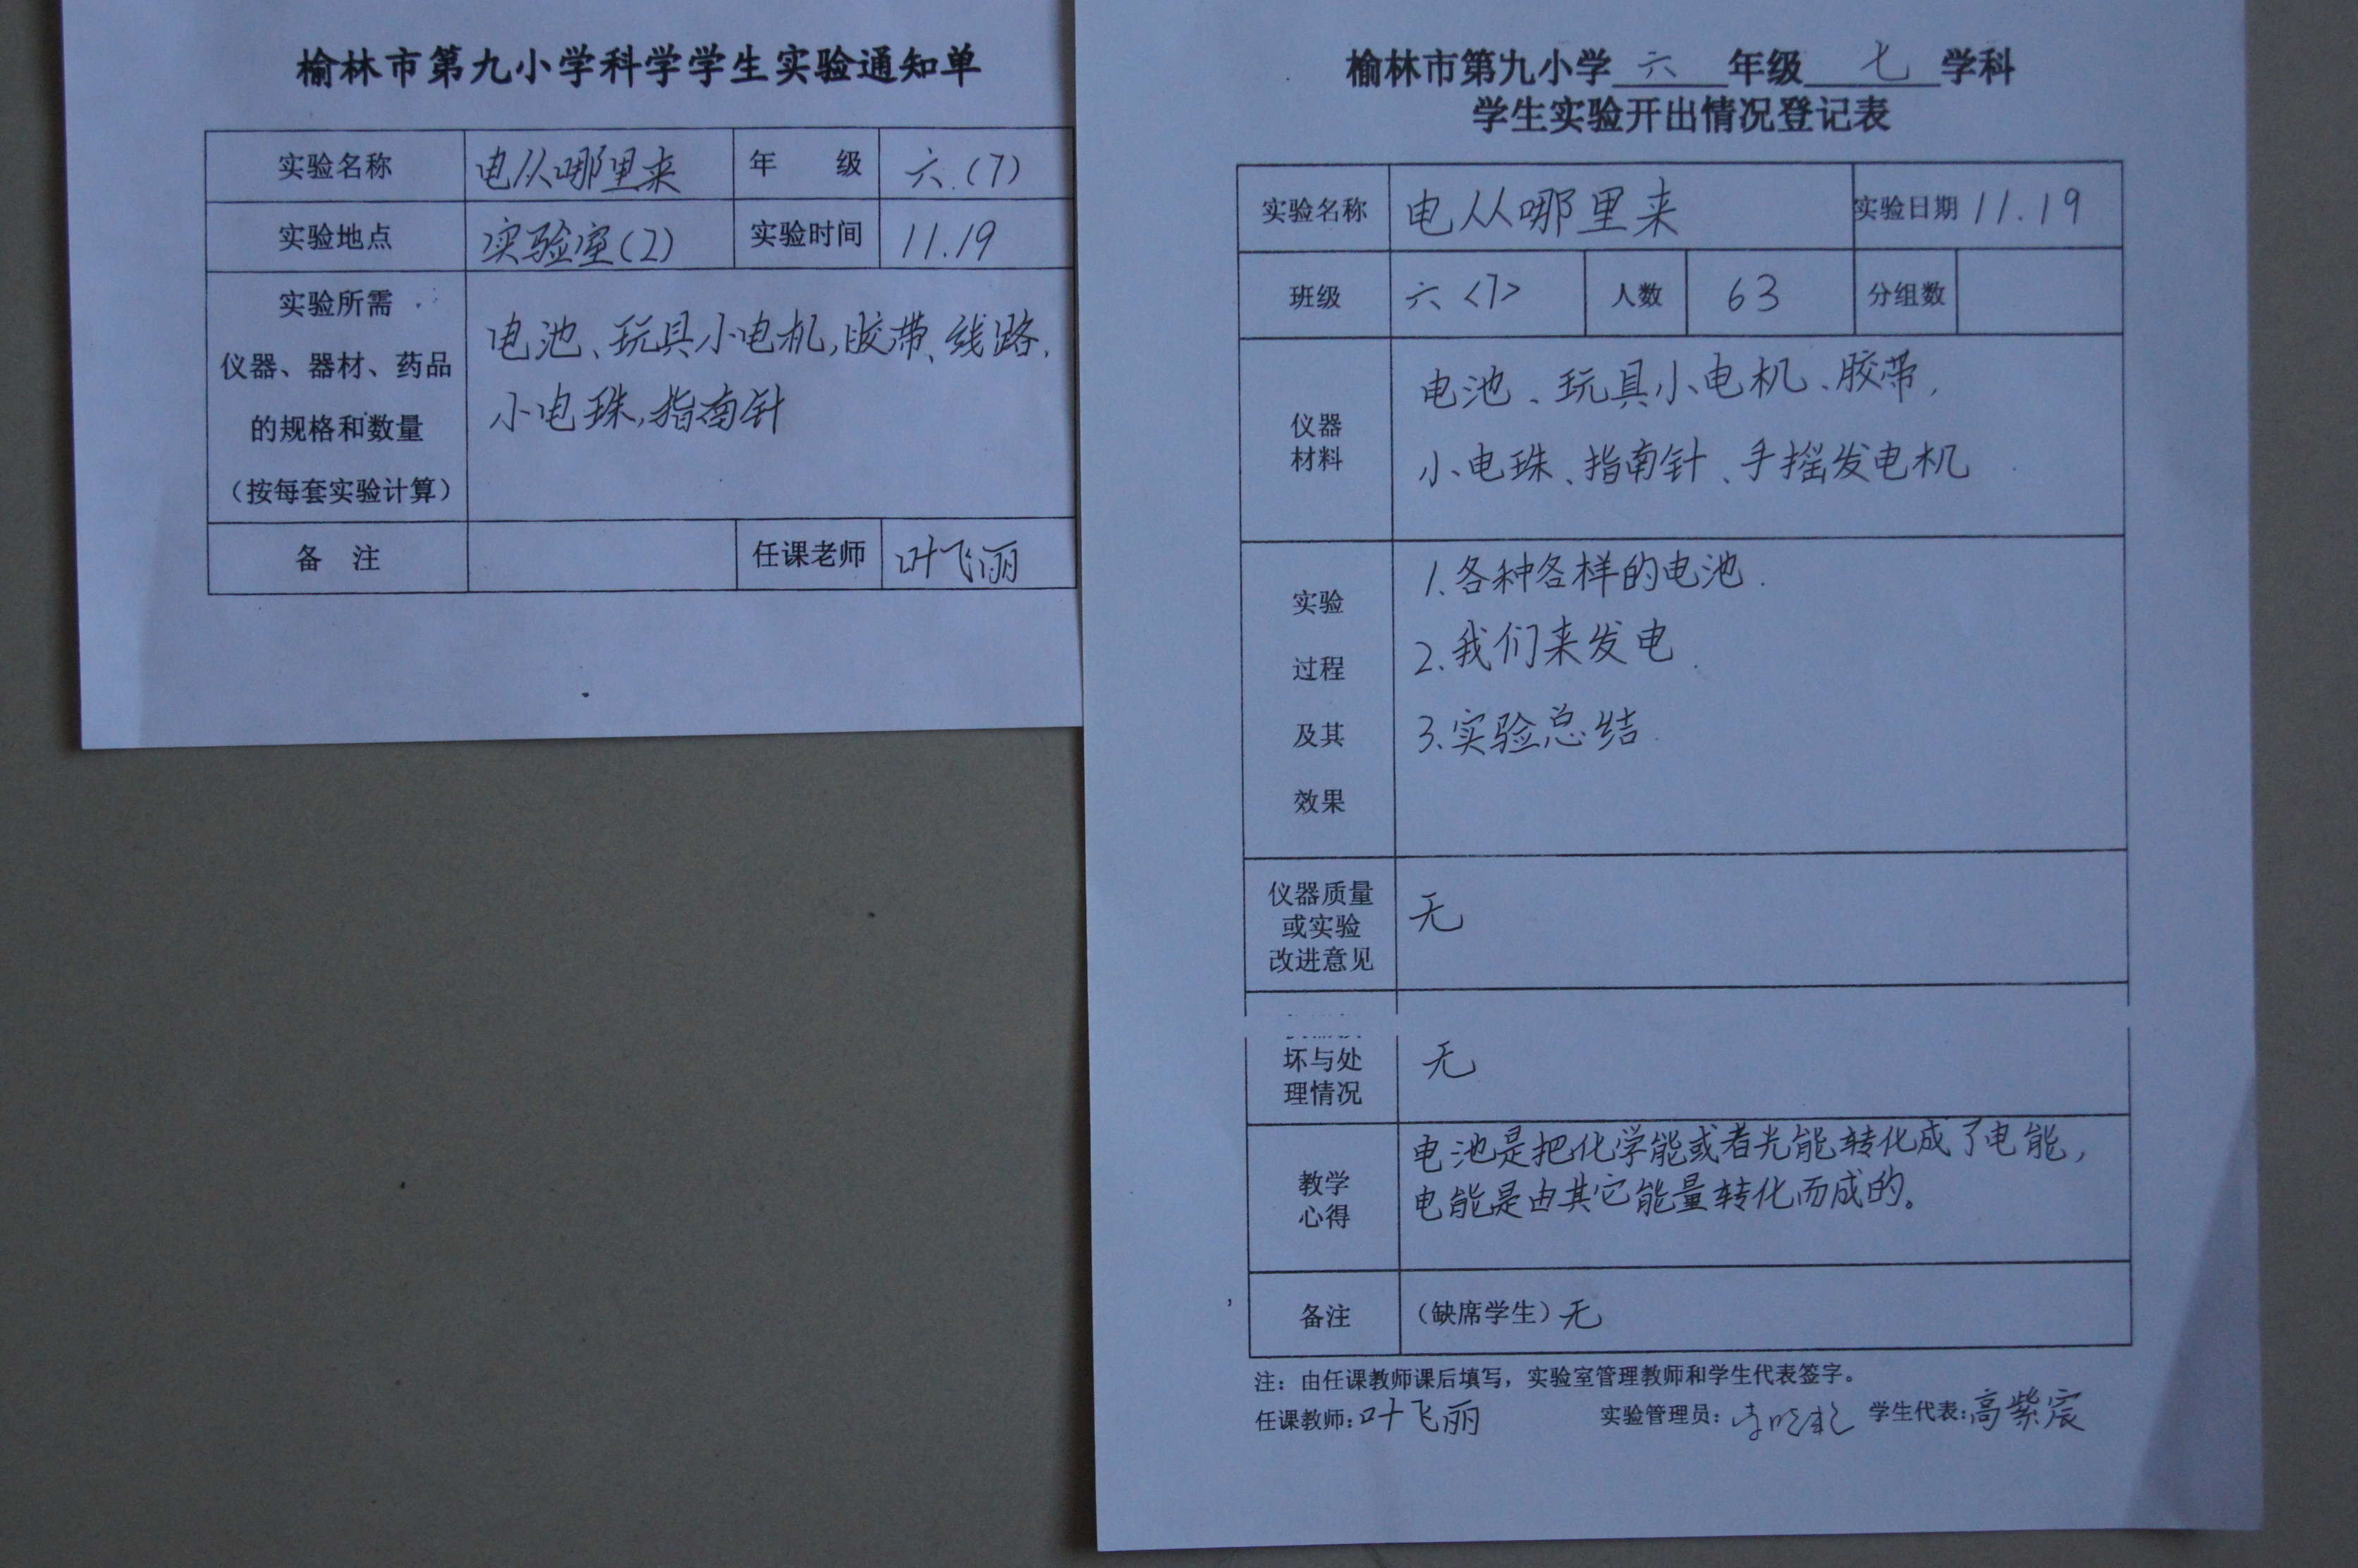 榆林市第九小学科学学生实验通知单
实验名称 电从哪里来 年 级 六.(7)
实验地点 实验室(2) 实验时间 11.19
实验所需
仪器、器材、药品
的规格和数量
(按每套实验计算)
电池、玩具小电机,胶带、线路.
小电珠,指南针
备 注 任课老师 叶飞丽
榆林市第九小学 六 年级 七 学科
学生实验开出情况登记表
实验名称 电从哪里来 实验日期 11.19
班级 六<7> 人数 63 分组数
仪器
材料
电池、玩具小电机、胶带,
小电珠、指南针、手摇发电机
实验
过程
及其
效果
1.各种各样的电池.
2.我们来发电.
3.实验总结.
仪器质量
或实验
改进意见
无
坏与处
理情况
无
教学
心得
电池是把化学能或者光能转化成了电能,
电能是由其它能量转化而成的。
备注 (缺席学生)无
注: 由任课教师课后填写, 实验室管理教师和学生代表签字。
任课教师:叶飞丽 实验管理员: 学生代表:高紫宸